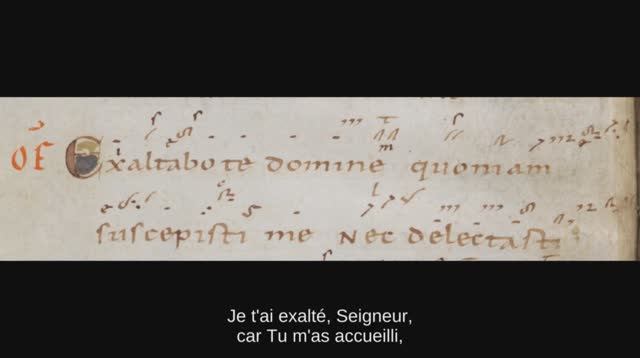 OF Exaltabo te domine quoniam
suscepisti me Nec delectasti
Je t'ai exalté, Seigneur,
car Tu m'as accueilli,